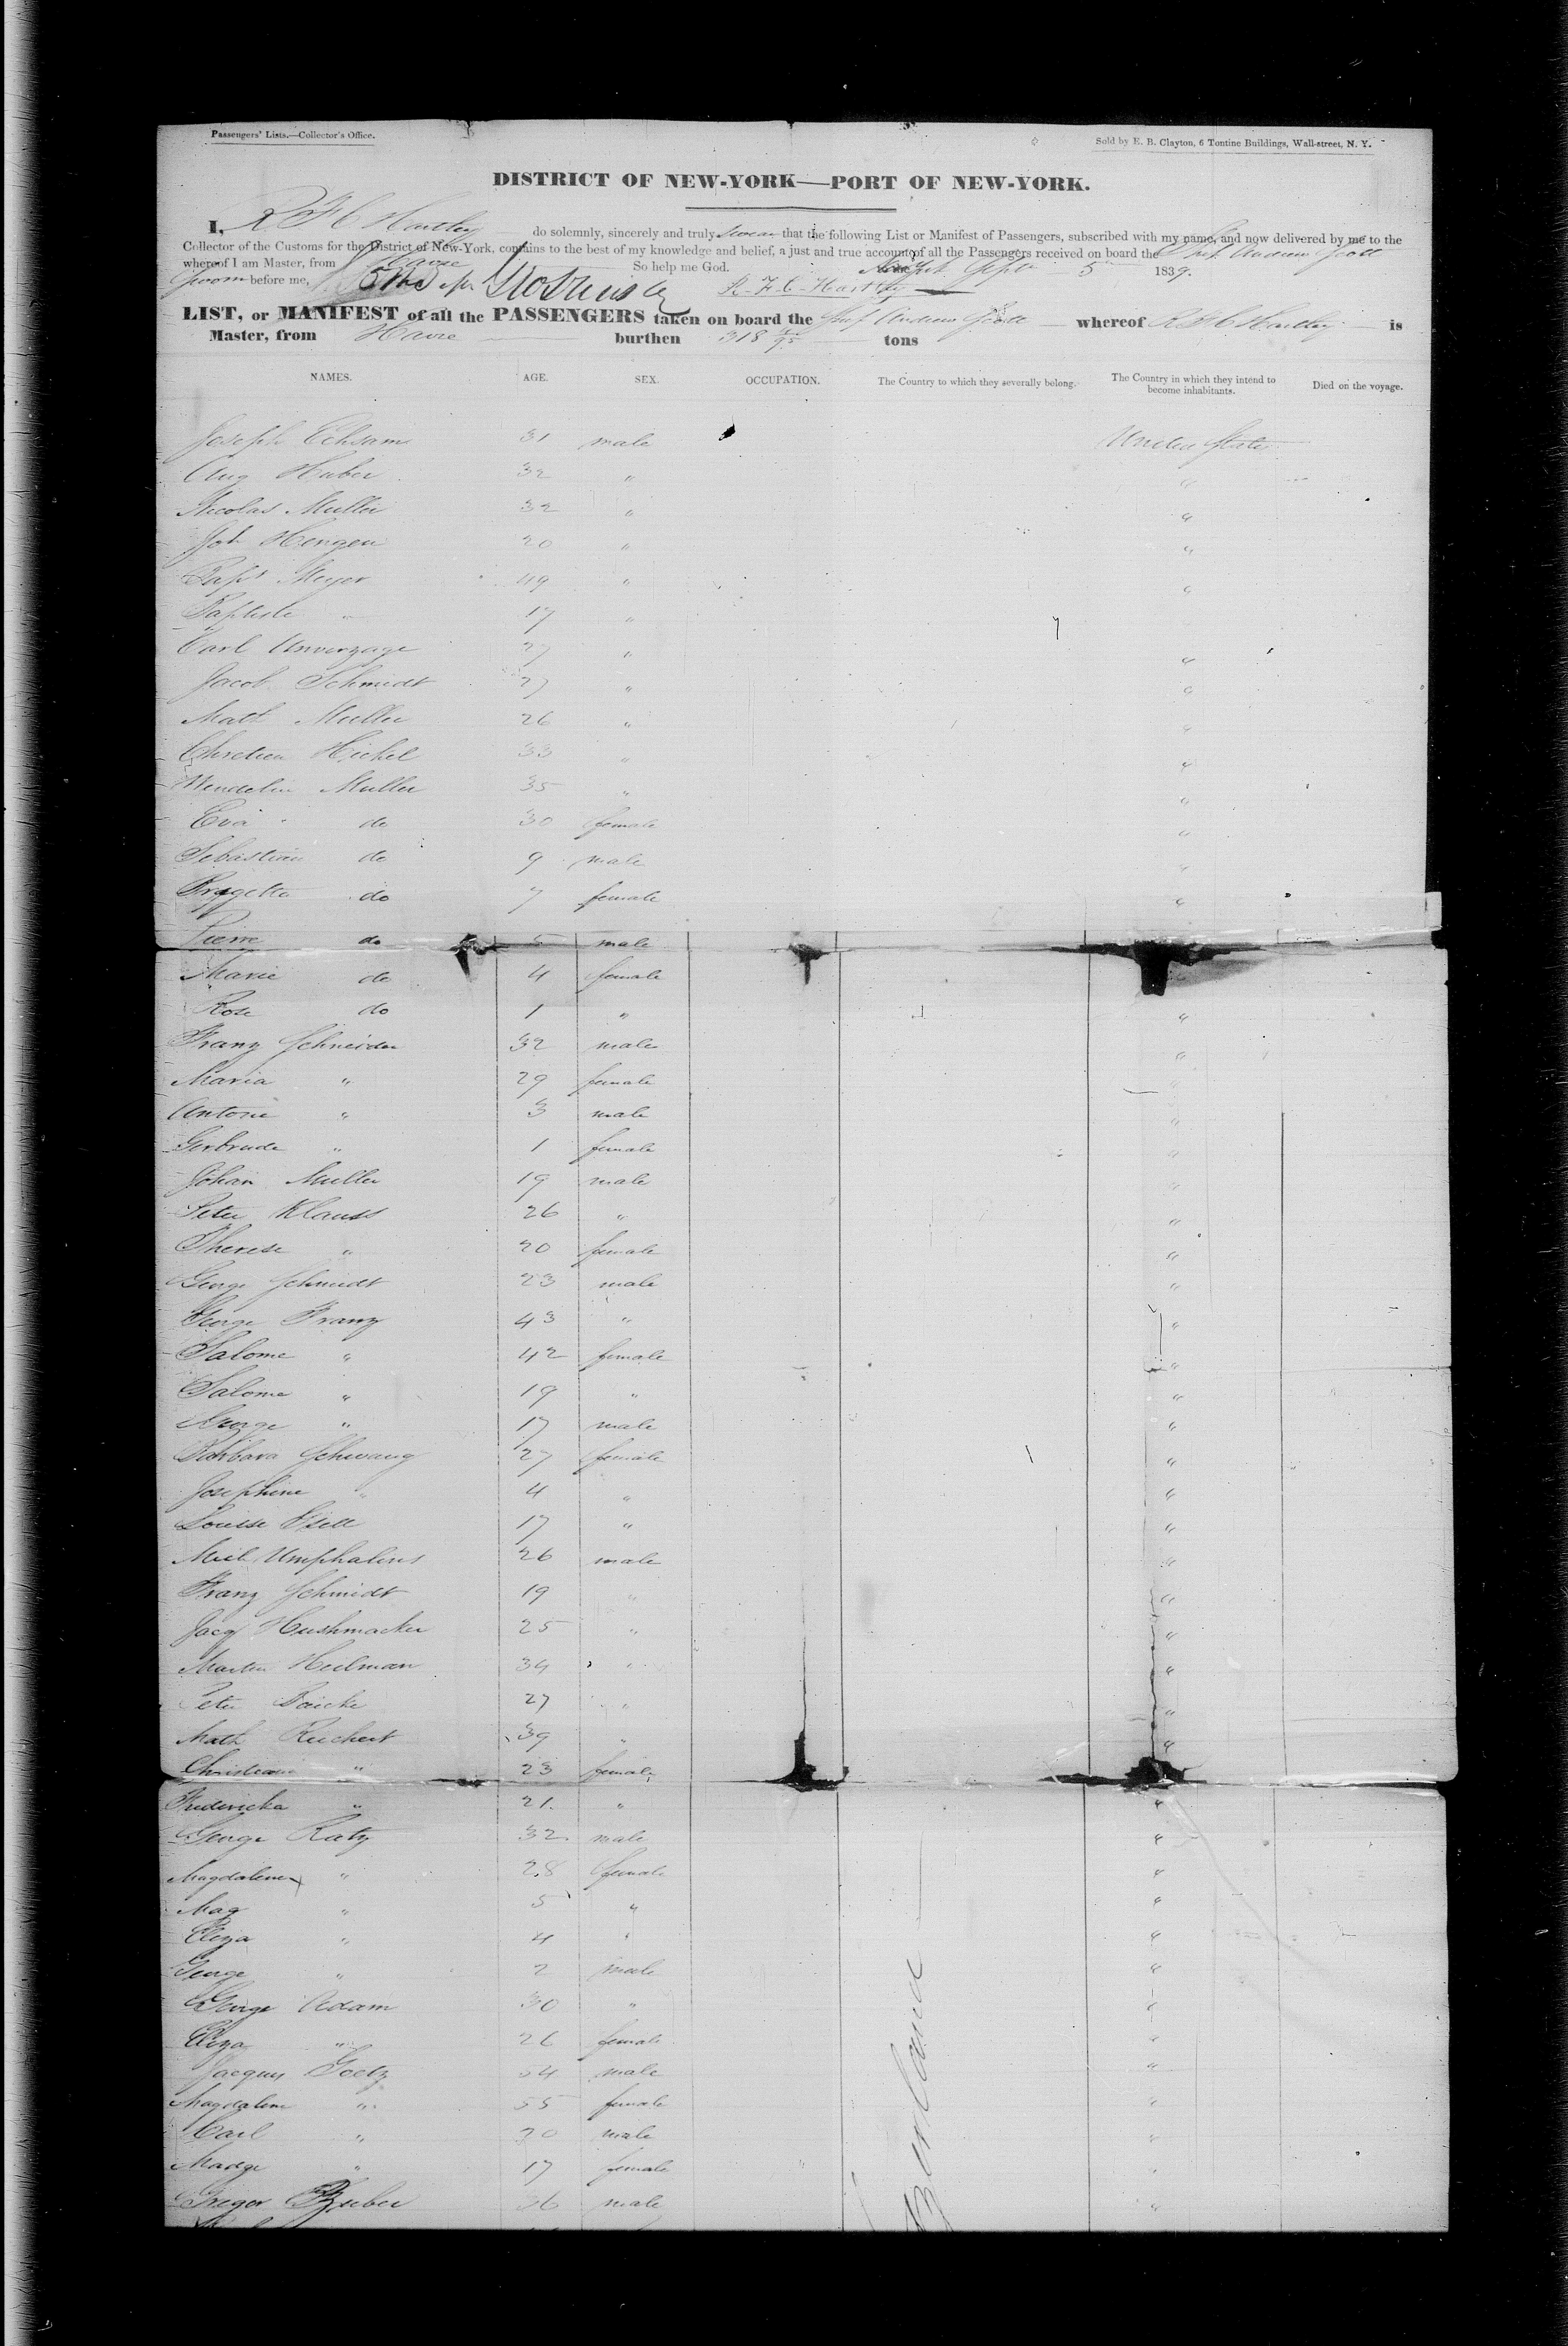 Passengers' Lists.—Collector's Office.
Sold by E. B. Clayton, 6 Tontine Buildings, Wall-street, N. Y.
DISTRICT OF NEW-YORK—PORT OF NEW-YORK.
I, R F C Hartley do solemnly, sincerely and truly swear that the following List or Manifest of Passengers, subscribed with my name, and now delivered by me to the
Collector of the Customs for the District of New-York, contains to the best of my knowledge and belief, a just and true account of all the Passengers received on board the Ship Andrew Scott
whereof I am Master, from Havre So help me God. Sept 5 1839.
Sworn before me, R. F. C. Hartley
LIST, or MANIFEST of all the PASSENGERS taken on board the Ship Andrew Scott whereof R F C Hartley is
Master, from Havre burthen 318 /95 tons
NAMES. AGE. SEX. OCCUPATION. The Country to which they severally belong. The Country in which they intend to become inhabitants. Died on the voyage.
Joseph 31 male United States
Aug Huber 32 " "
Nicolas Muller 32 " "
Joh Hengen 20 " "
Bapt Meyer 49 " "
Baptiste " 17 "
Carl Unverzagt 27 " "
Jacob Schmidt 27 " "
Math Muller 26 " "
Chretien Hickel 33 " "
Wendelin Muller 35 " "
Eva do 30 female "
Sebastian do 9 male "
do 7 female "
Pierre do 5 male
Marie do 4 female
Rose do 1 " "
Franz Schneider 32 male "
Maria " 29 female "
Antoine " 3 male "
Gertrude " 1 female "
Johan Muller 19 male "
Peter Klauss 26 " "
Therese " 20 female "
George Schmidt 23 male "
George Franz 43 " "
Salome " 42 female "
Salome " 19 " "
George " 17 male "
Barbara Schwang 27 female "
Josephine " 4 " "
Louise 17 " "
Mich Umphalius 26 male "
Franz Schmidt 19 " "
Jacq Hushmacker 25 " "
Martin Heilman 34 " "
Peter 27 " "
Math Reichert 39 " "
Christiane " 23 female
Fredericka " 21 " "
George Katz 32 male "
Magdalena " 28 female "
Mag " 5 " "
Eliza " 4 " "
George " 2 male "
George Adam 30 " "
Eliza " 26 female "
Jacques Goetz 54 male "
Magdalena " 55 female "
Carl " 20 male "
Madge " 17 female "
Gregor Zuber 36 male "